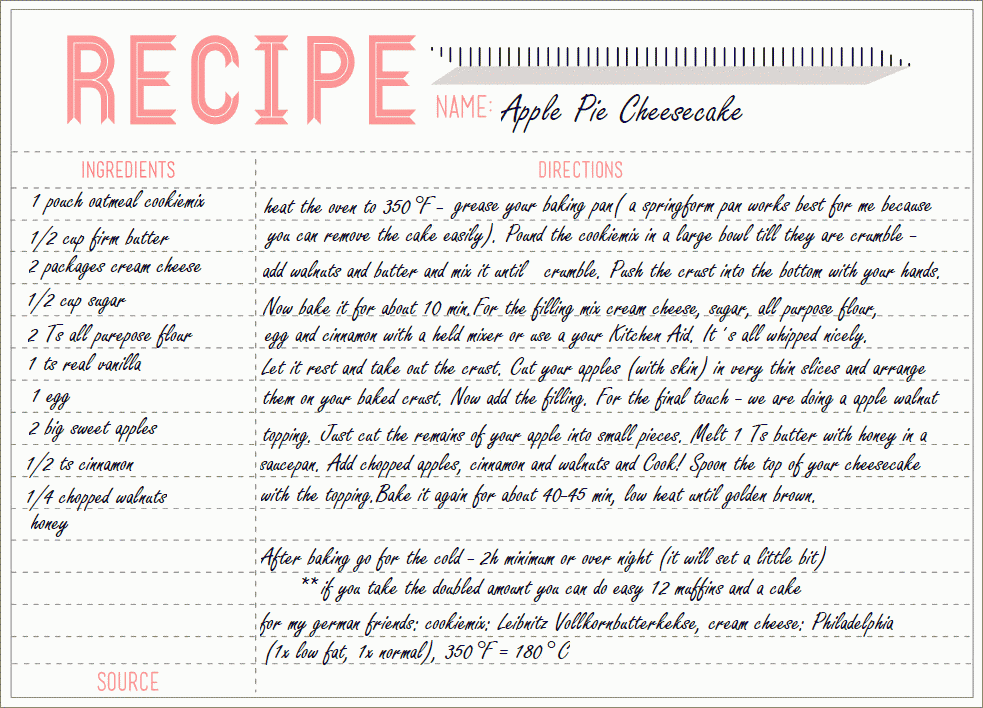 RECIPE
NAME: Apple Pie Cheesecake
INGREDIENTS
1 pouch oatmeal cookiemix
1/2 cup firm butter
2 packages cream cheese
1/2 cup sugar
2 Ts all purepose flour
1 ts real vanilla
1 egg
2 big sweet apples
1/2 ts cinnamon
1/4 chopped walnuts
honey
SOURCE
DIRECTIONS
heat the oven to 350°F - grease your baking pan( a springform pan works best for me because
you can remove the cake easily). Pound the cookiemix in a large bowl till they are crumble -
add walnuts and butter and mix it until crumble. Push the crust into the bottom with your hands.
Now bake it for about 10 min.For the filling mix cream cheese, sugar, all purpose flour,
egg and cinnamon with a held mixer or use a your Kitchen Aid. It´s all whipped nicely.
Let it rest and take out the crust. Cut your apples (with skin) in very thin slices and arrange
them on your baked crust. Now add the filling. For the final touch - we are doing a apple walnut
topping. Just cut the remains of your apple into small pieces. Melt 1 Ts butter with honey in a
saucepan. Add chopped apples, cinnamon and walnuts and Cook! Spoon the top of your cheesecake
with the topping.Bake it again for about 40-45 min, low heat until golden brown.
After baking go for the cold - 2h minimum or over night (it will set a little bit)
**if you take the doubled amount you can do easy 12 muffins and a cake
for my german friends: cookiemix: Leibnitz Vollkornbutterkekse, cream cheese: Philadelphia
(1x low fat, 1x normal), 350°F = 180°C